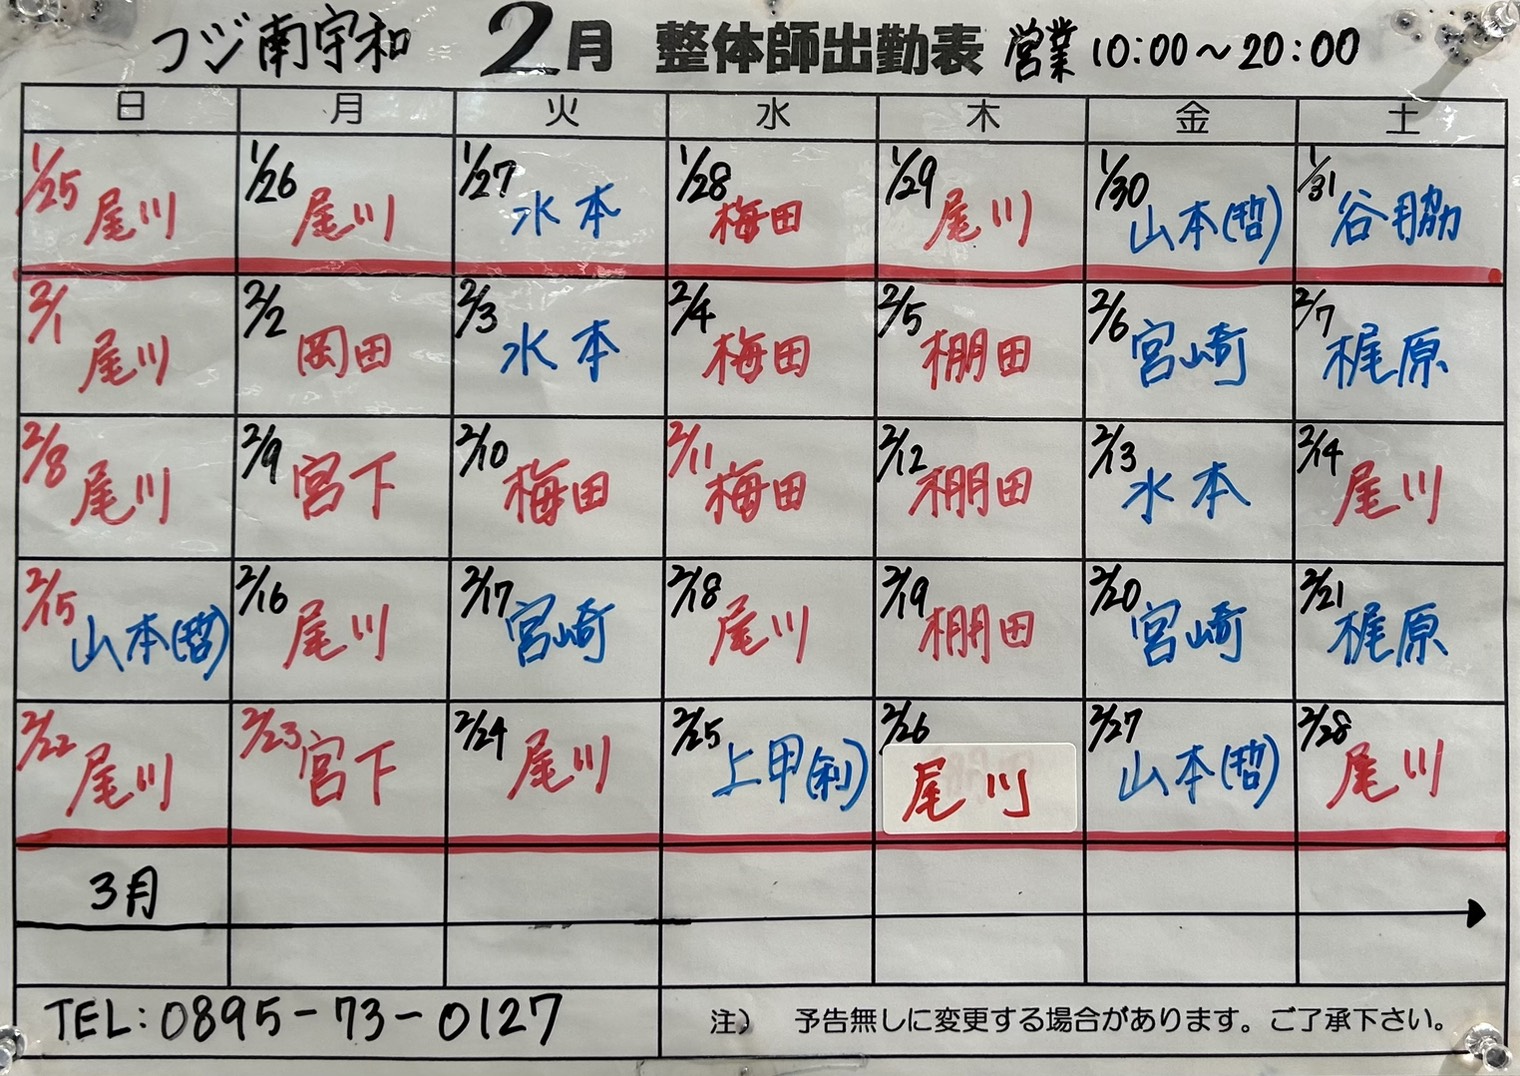 フジ南宇和 2月 整体師出勤表 営業 10:00～20:00
日 月 火 水 木 金 土
1/25 尾川 1/26 尾川 1/27 水本 1/28 梅田 1/29 尾川 1/30 山本(哲) 1/31 谷脇
2/1 尾川 2/2 岡田 2/3 水本 2/4 梅田 2/5 棚田 2/6 宮崎 2/7 梶原
2/8 尾川 2/9 宮下 2/10 梅田 2/11 梅田 2/12 棚田 2/13 水本 2/14 尾川
2/15 山本(哲) 2/16 尾川 2/17 宮崎 2/18 尾川 2/19 棚田 2/20 宮崎 2/21 梶原
2/22 尾川 2/23 宮下 2/24 尾川 2/25 上甲(利) 2/26 尾川 2/27 山本(哲) 2/28 尾川
3月
TEL:0895-73-0127
注） 予告無しに変更する場合があります。ご了承下さい。